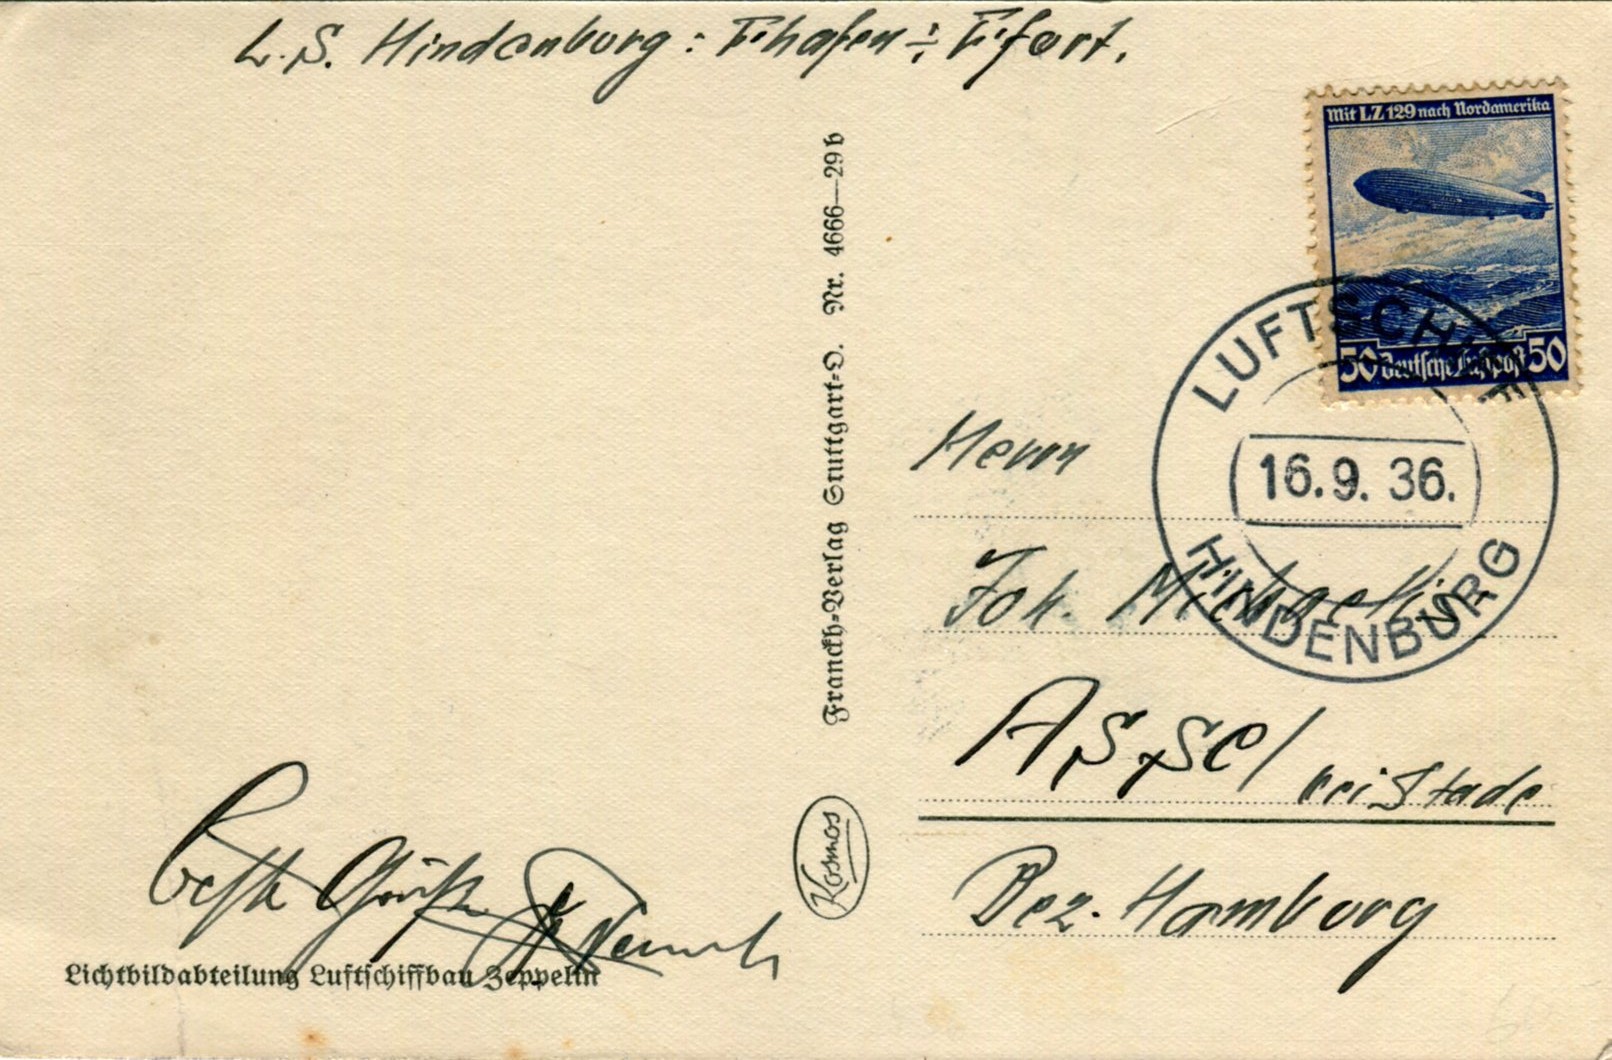 L.S. Hindenburg: F'hafen ÷ F'fort.
Mit LZ 129 nach Nordamerika
50 Deutsche Luftpost 50
LUFTSCHIFF
16.9.36.
HINDENBURG
Franckh-Verlag Stuttgart-O. Nr. 4666—29 b
Kosmos
Herrn
Joh.
Assel bei Stade
Bez. Hamburg
beste Grüße
Lichtbildabteilung Luftschiffbau Zeppelin